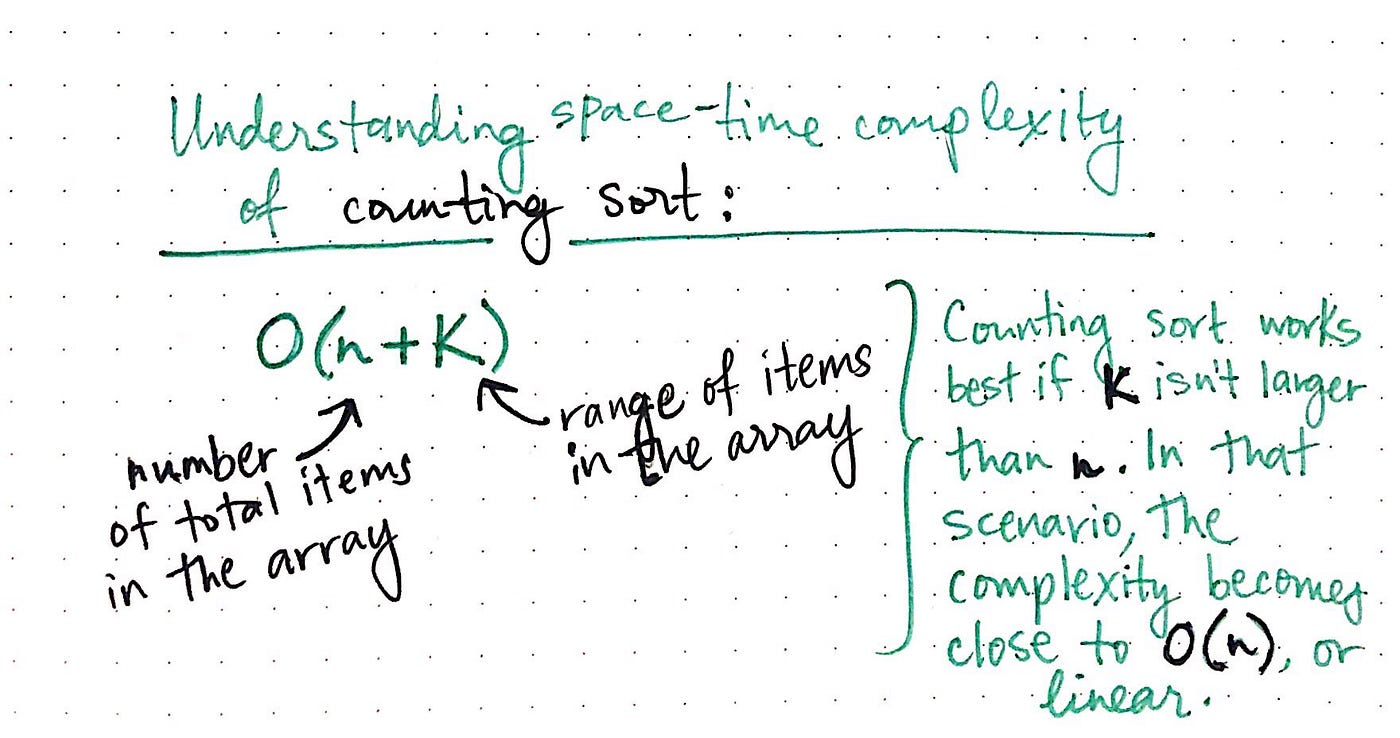 Understanding space-time complexity
of counting sort:
O(n+K)
number
of total items
in the array
range of items
in the array
Counting sort works
best if K isn't larger
than n. In that
scenario, the
complexity becomes
close to O(n), or
linear.